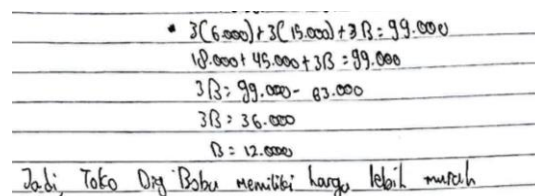 • 3(6.000) + 3(15.000) + 3B = 99.000
18.000 + 45.000 + 3B = 99.000
3B = 99.000 - 63.000
3B = 36.000
B = 12.000
Jadi, Toko Dig Bobu memiliki harga lebih murah